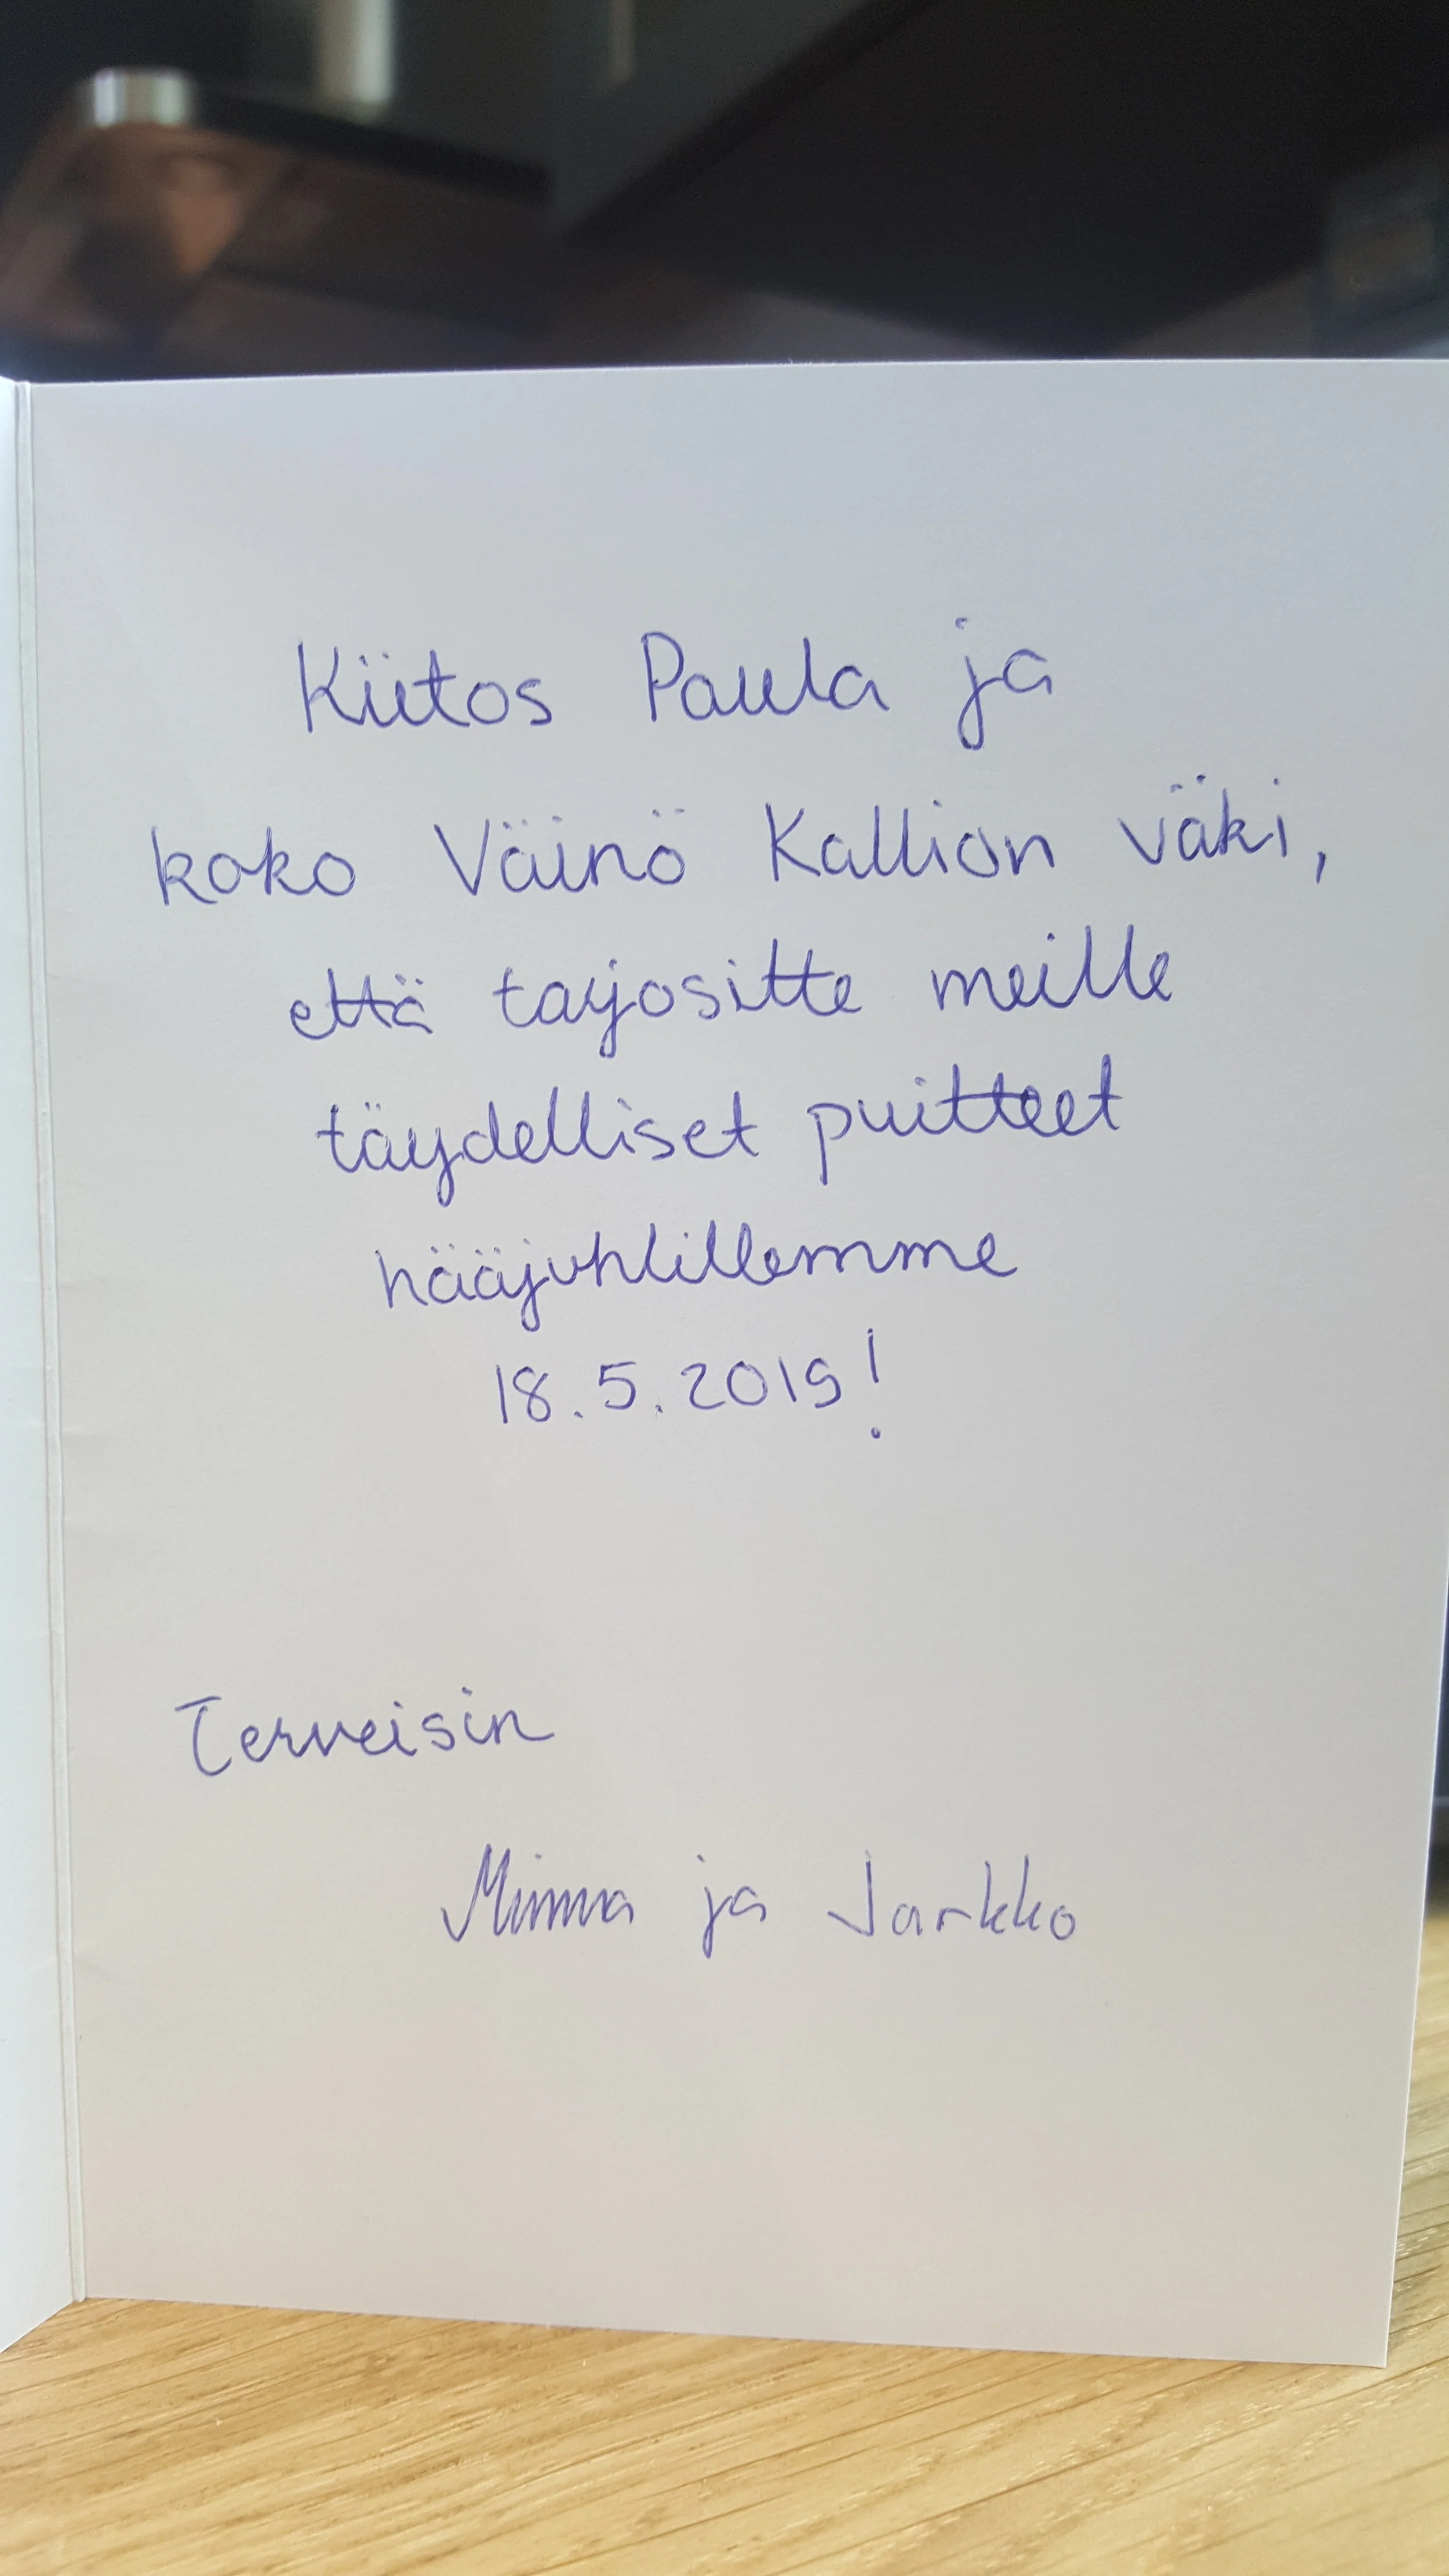 Kiitos Paula ja
koko Väinö Kallion väki,
että tarjositte meille
täydelliset puitteet
hääjuhlillemme
18.5.2019!
Terveisin
Minna ja Jarkko